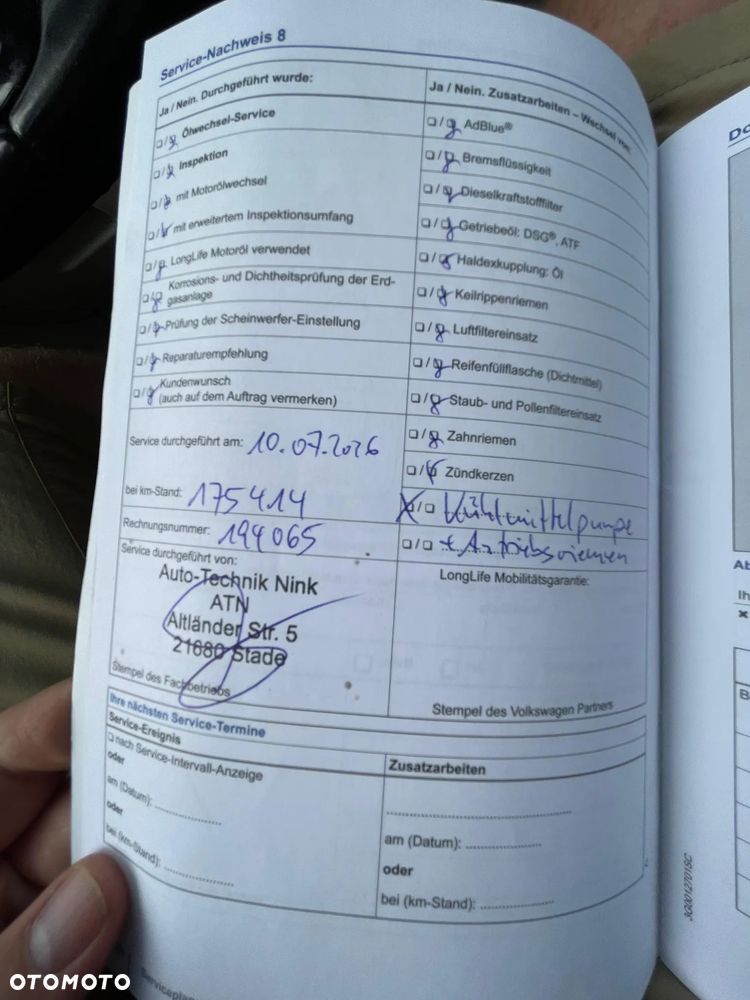 Service-Nachweis 8
Ja / Nein. Durchgeführt wurde:
Ölwechsel-Service
Inspektion
mit Motorölwechsel
mit erweitertem Inspektionsumfang
LongLife Motoröl verwendet
Korrosions- und Dichtheitsprüfung der Erd-
gasanlage
Prüfung der Scheinwerfer-Einstellung
Reparaturempfehlung
Kundenwunsch
(auch auf dem Auftrag vermerken)
Service durchgeführt am: 10.07.2026
bei km-Stand: 175414
Rechnungsnummer: 194065
Service durchgeführt von:
Auto-Technik Nink
ATN
Altländer Str. 5
21680 Stade
Stempel des Fachbetriebs
Ja / Nein. Zusatzarbeiten – Wechsel von:
AdBlue®
Bremsflüssigkeit
Dieselkraftstofffilter
Getriebeöl: DSG®, ATF
Haldexkupplung: Öl
Keilrippenriemen
Luftfiltereinsatz
Reifenfüllflasche (Dichtmittel)
Staub- und Pollenfiltereinsatz
Zahnriemen
Zündkerzen
Kühlmittelpumpe
+ Antriebsriemen
LongLife Mobilitätsgarantie:
Stempel des Volkswagen Partners
Ihre nächsten Service-Termine
Service-Ereignis
nach Service-Intervall-Anzeige
oder
am (Datum):
oder
bei (km-Stand):
Zusatzarbeiten
am (Datum):
oder
bei (km-Stand):
3G0012701SC
OTOMOTO